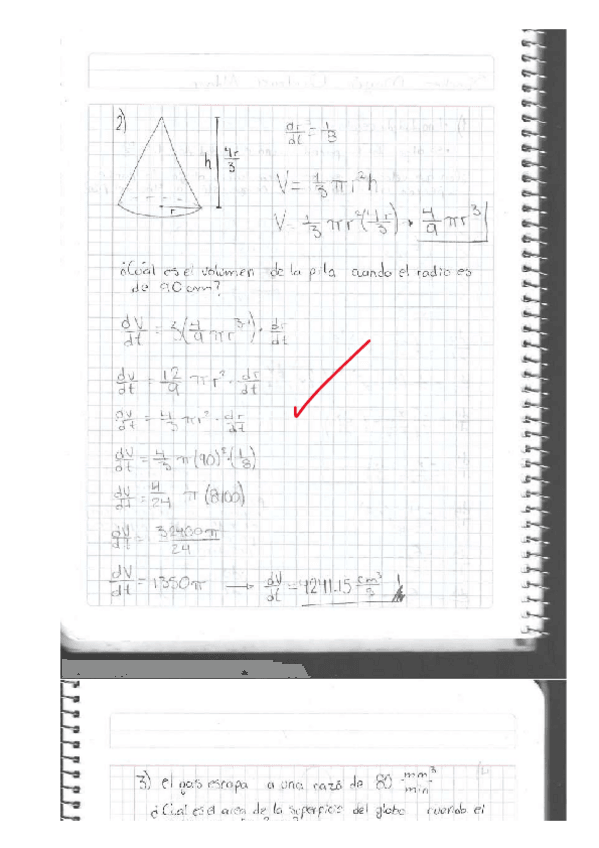 2)
h
4r/3
r
dr/dt = 1/8
V = 1/3 πr²h
V = 1/3 πr²(4r/3) → 4/9 πr³
¿Cúal es el volumen de la pila cuando el radio es
de 90 cm?
dV/dt = 3(4/9 πr³⁻¹) · dr/dt
dV/dt = 12/9 πr² · dr/dt
dV/dt = 4/3 πr² · dr/dt
dV/dt = 4/3 π(90)² · (1/8)
dV/dt = 4/24 π(8100)
dV/dt = 32400π/24
dV/dt = 1350π → dV/dt = 4241.15 cm³/s
3) el gas escapa a una razó de 80 mm³/min
¿Cúal es el area de la superficie del globo cuando el